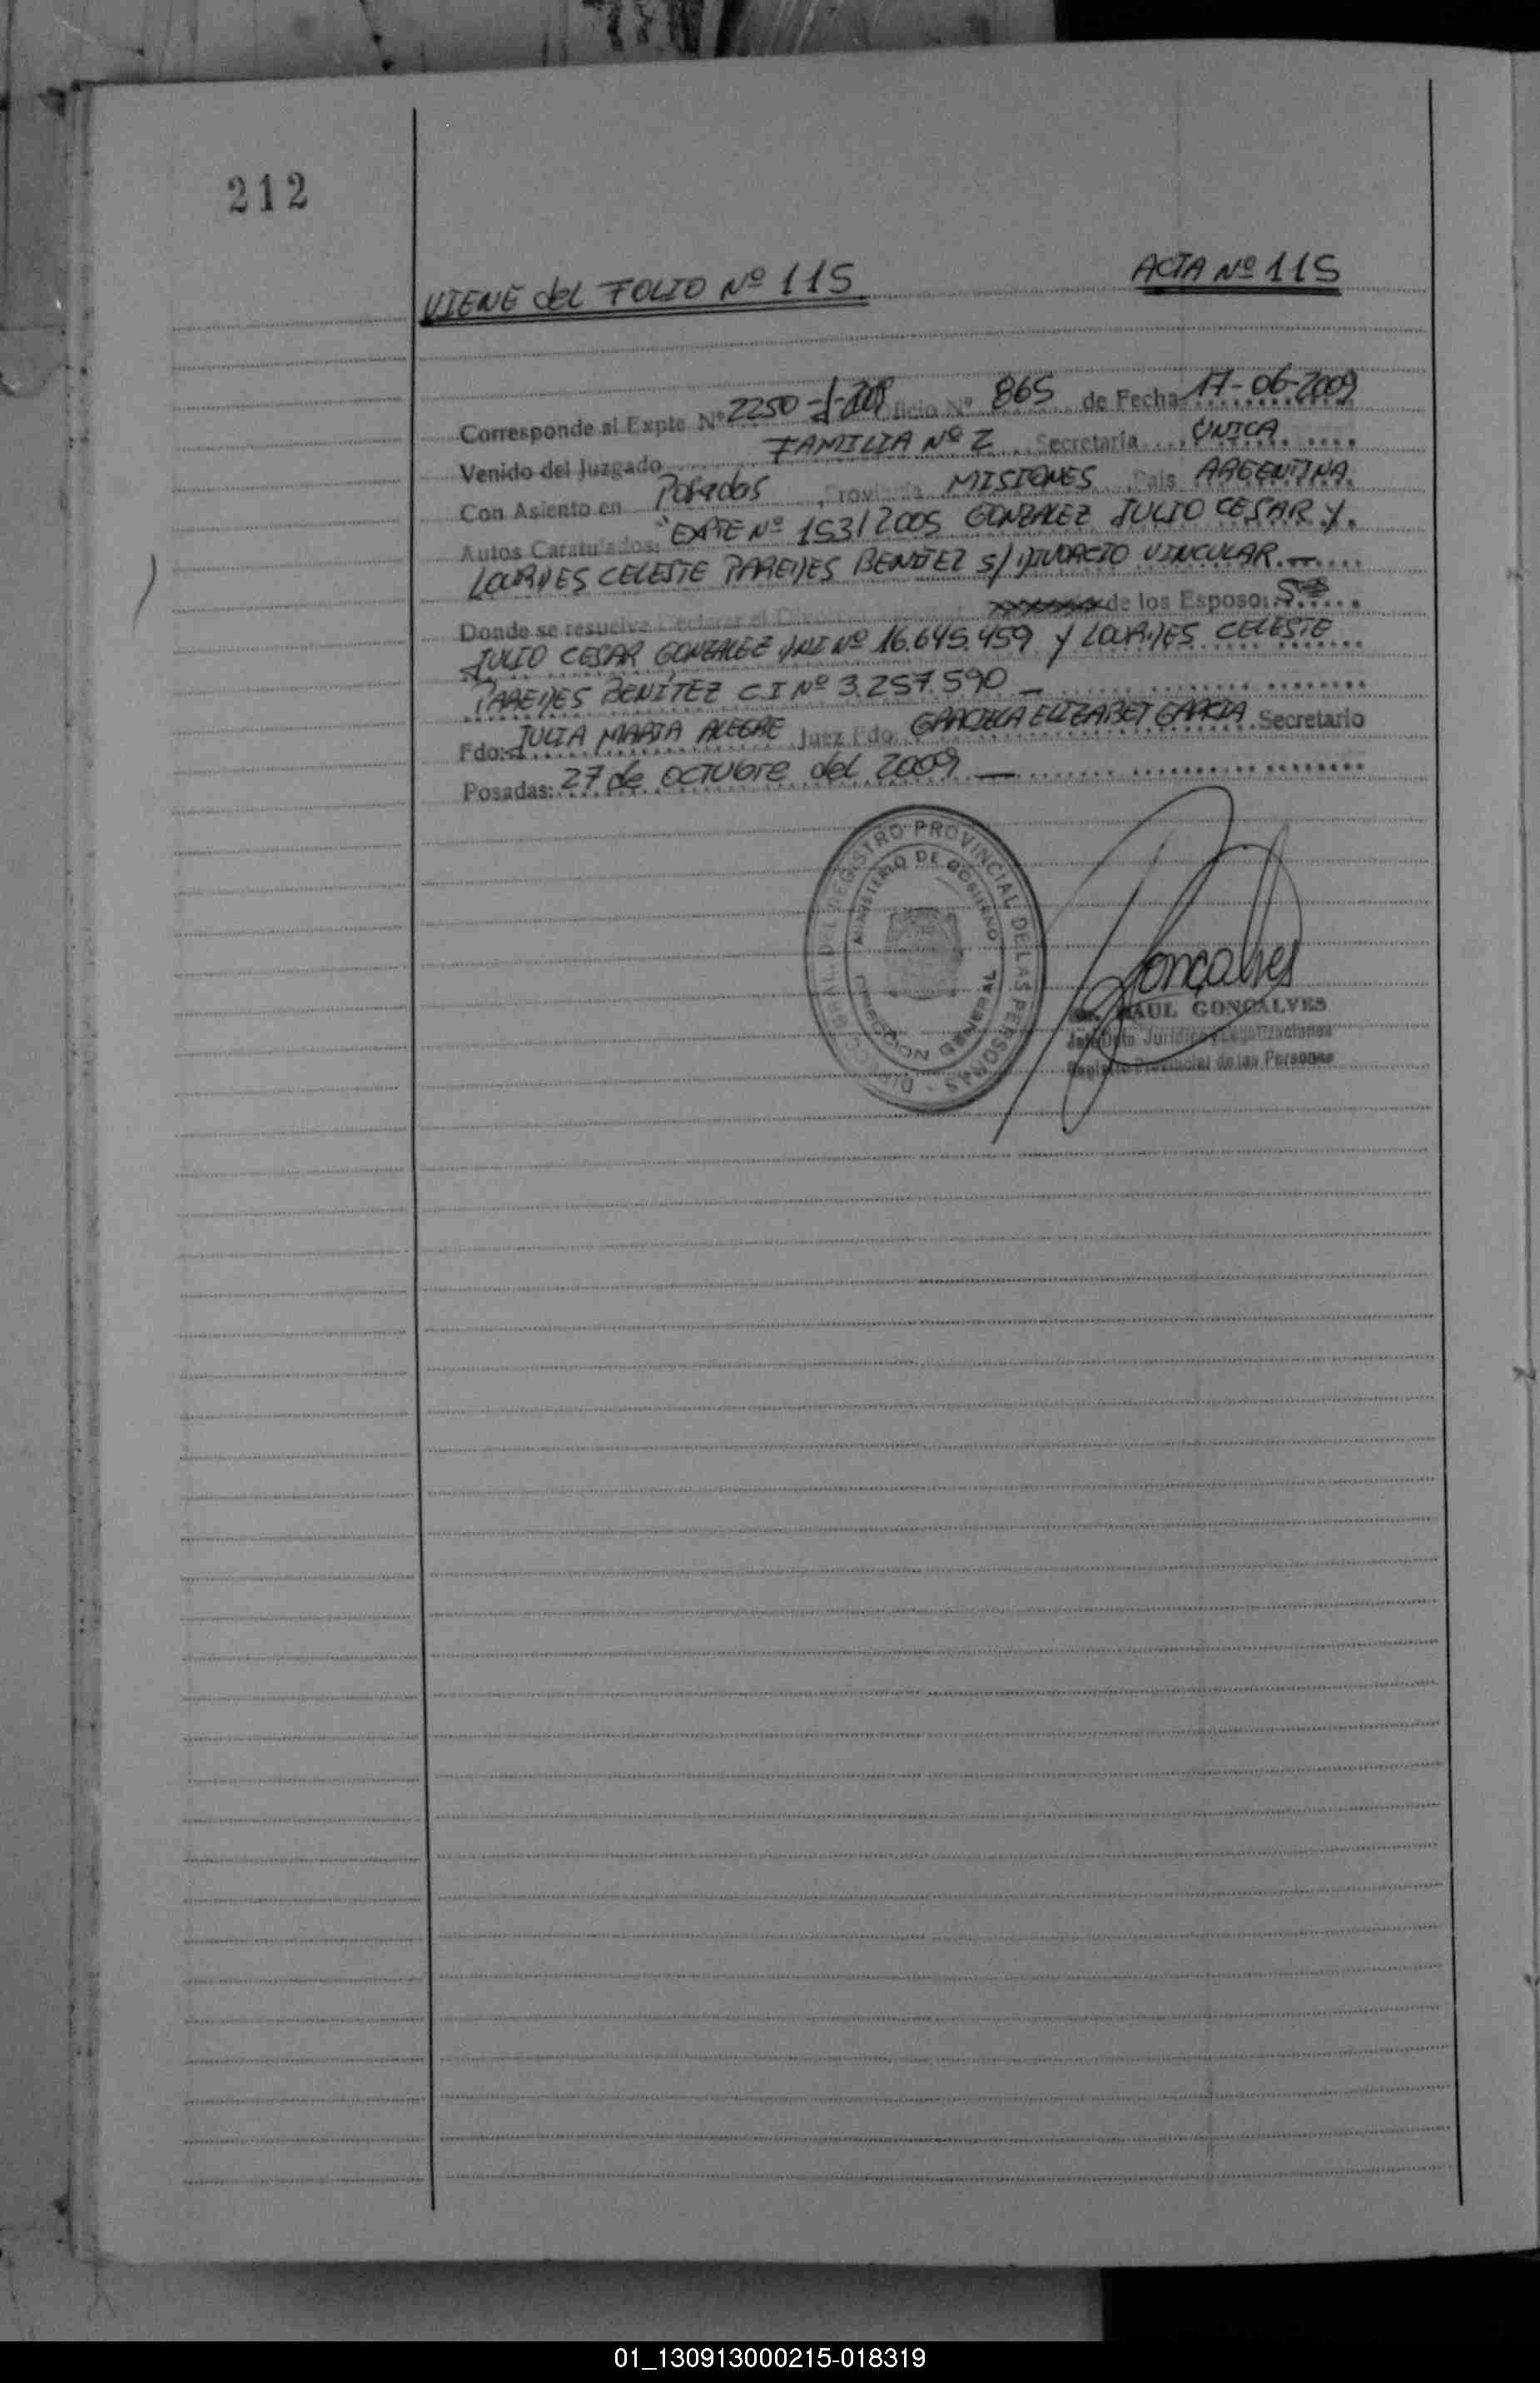 212
VIENE del FOLIO Nº 115 ACTA Nº 115
Corresponde al Expte Nº 2250-J-209 Oficio Nº 865 de Fecha 17-06-2009
Venido del Juzgado FAMILIA Nº 2 Secretaría ÚNICA
Con Asiento en Posadas, Provincia MISIONES País ARGENTINA
Autos Caratulados: "EXPTE Nº 153/2005 GONZALEZ JULIO CESAR y
LOURDES CELESTE PAREDES BENITEZ s/ DIVORCIO VINCULAR.—
Donde se resuelve Declarar el Divorcio de los Esposos
JULIO CESAR GONZALEZ DNI Nº 16.645.459 y LOURDES CELESTE
PAREDES BENÍTEZ C.I Nº 3.257.590 —
Fdo: JULIA MARIA ALEGRE Juez Fdo. GRACIELA ELIZABET GARCIA Secretario
Posadas: 27 de octubre del 2009 —
DIRECC. GRAL. DEL REGISTRO PROVINCIAL DE LAS PERSONAS -
MINISTERIO DE GOBIERNO
DIRECCION GENERAL
Goncalves
RAUL GONCALVES
Jefe Dpto Jurídico y Legalizaciones
Registro Provincial de las Personas
01_130913000215-018319